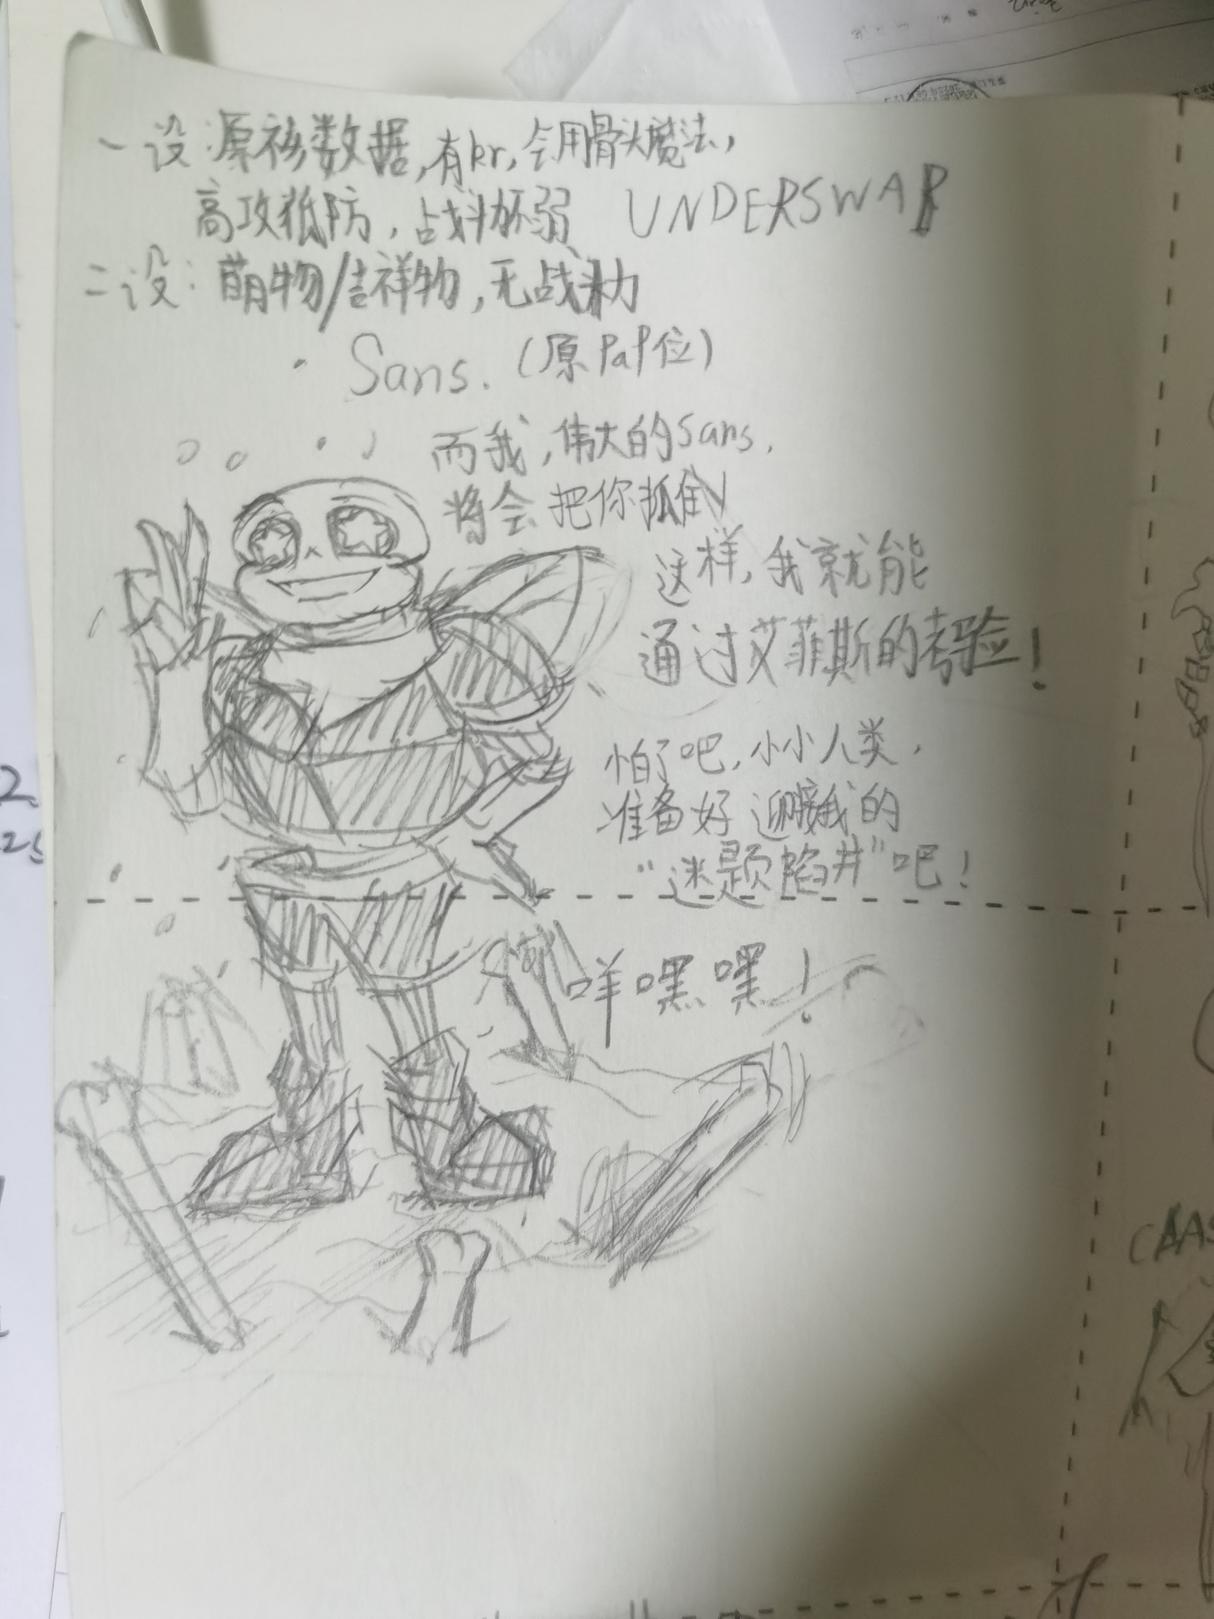 一设:原衫数据,有kr,会用骨头魔法,
高攻低防,战斗怀弱 UNDERSWAP
二设:萌物/吉祥物,无战斗力
Sans.(原PaP位)
而我,伟大的sans,
将会把你抓住!
这样,我就能
通过艾菲斯的考验!
怕了吧,小小人类,
准备好迎接我的
“迷题陷井”吧!
咩嘿嘿!